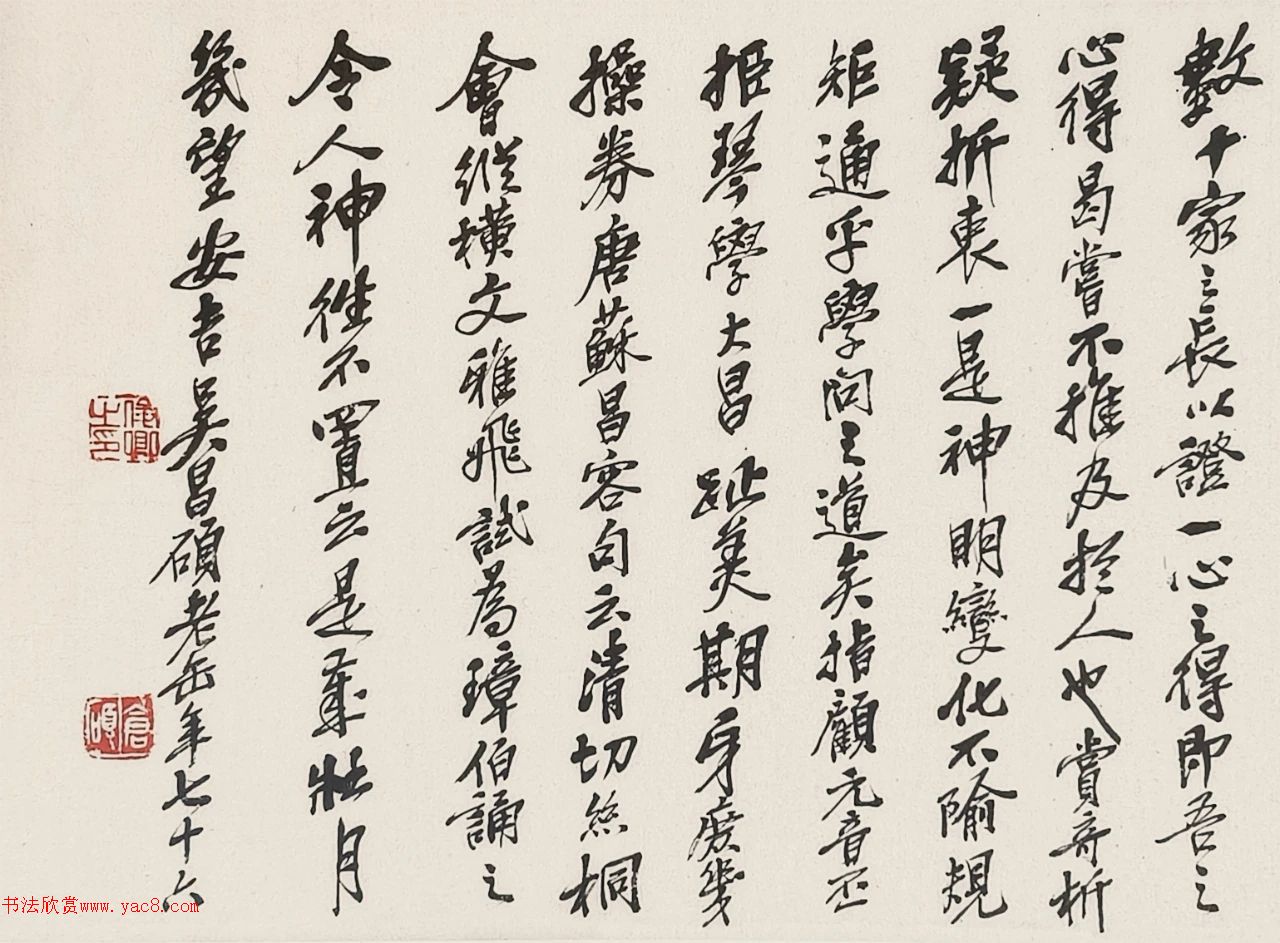 數十家之長以證一心之得即吾之
心得曷嘗不推及於人也賞奇析
疑折衷一是神明變化不隃規
矩通乎學問之道矣指顧元音丕
拒琴學大昌趾美期牙庶幾
操券唐蘇昌容句云清切絲桐
會縱橫文雅飛試為璋伯誦之
令人神往不置云是歲壯月
幾望安吉吳昌碩老缶年七十六
俊卿之印
倉碩
书法欣赏www.yac8.com